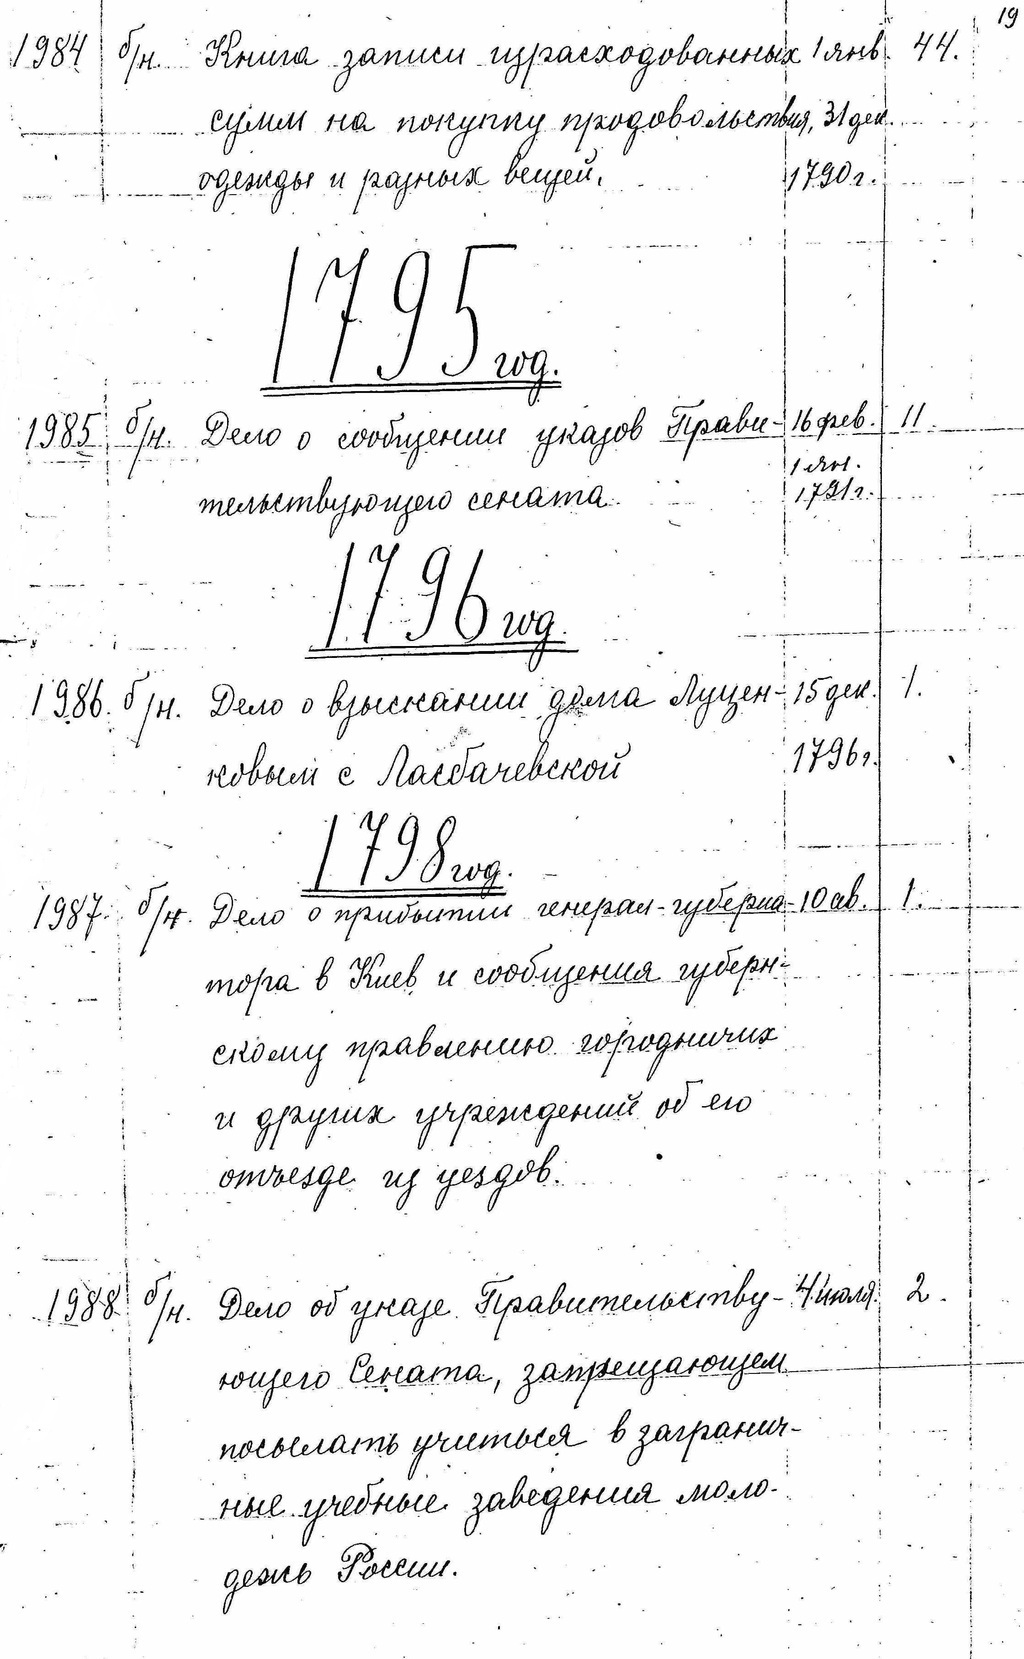 19
1984 б/н. Книга записи израсходованных 1 янв. 44.
сумм на покупку продовольствия, 31 дек.
одежды и разных вещей. 1790 г.
1795 год.
1985 б/н. Дело о сообщении указов Прави- 16 фев. 11.
1 янв.
тельствующего сената. 1791 г.
1796 год.
1986. б/н. Дело о взыскании дома Луцен- 15 дек. 1.
ковым с Ласбачевской 1796 г.
1798 год.
1987. б/н. Дело о прибытии генерал-губерна- 10 ав. 1.
тора в Киев и сообщения губерн-
скому правлению городничих
и других учреждений об его
отъезде из уездов.
1988 б/н. Дело об указе Правительству- 4 июля. 2.
ющего Сената, запрещающем
посылать учиться в загранич-
ные учебные заведения моло-
дежь России.